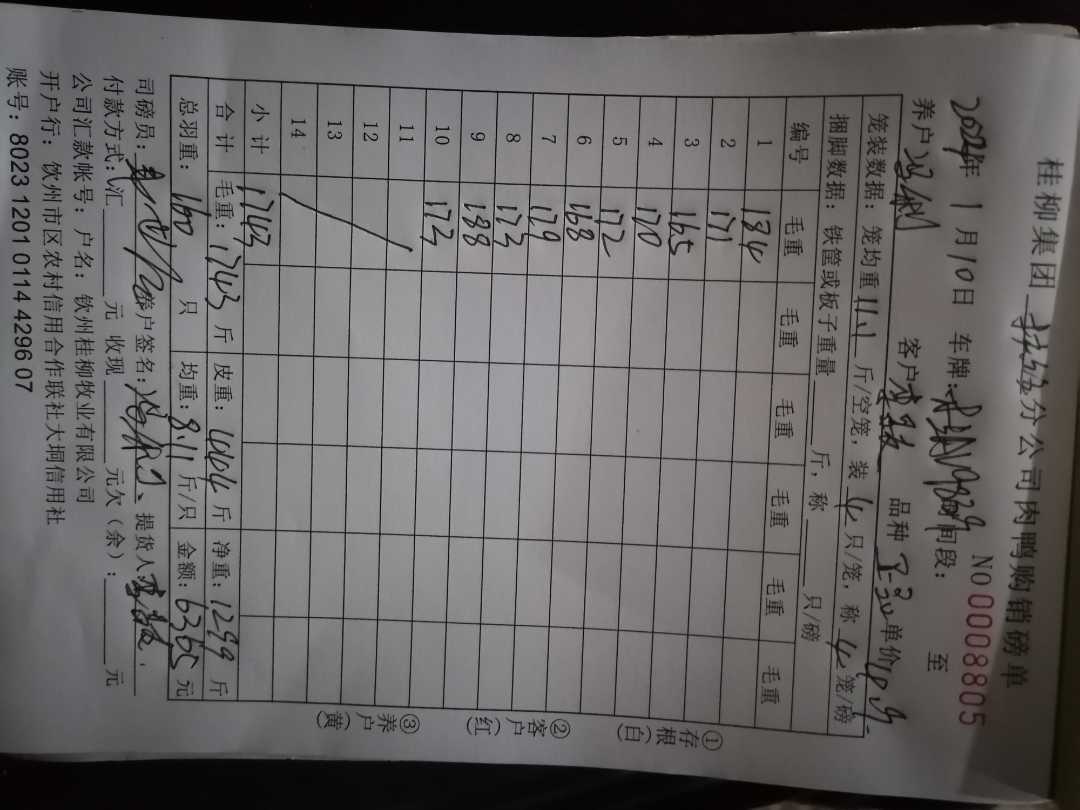 桂柳集团 分公司肉鸭购销磅单
NO 0008805
2024年 1月10日 车牌: 时间段: 至
养户 客户 品种 单价
笼装数据: 笼均重 11.1 斤/空笼, 装 4 只/笼, 称 4 笼/磅
捆脚数据: 铁筐或板子重量 斤, 称 只/磅
编号 毛重 毛重 毛重 毛重 毛重 毛重
1 184
2 171
3 165
4 170
5 172
6 168
7 179
8 173
9 188
10 173
11
12
13
14
小计 1743
合计 毛重: 1743 斤 皮重: 444 斤 净重: 1299 斤
总羽重: 160 只 均重: 8.11 斤/只 金额: 6365 元
司磅员: 养户签名: 提货人
付款方式: 汇 元 收现 元欠(余): 元
公司汇款帐号: 户名: 钦州桂柳牧业有限公司
开户行: 钦州市区农村信用合作联社大垌信用社
账号: 8023 1201 0114 4296 07
①存根(白)
②客户(红)
③养户(黄)